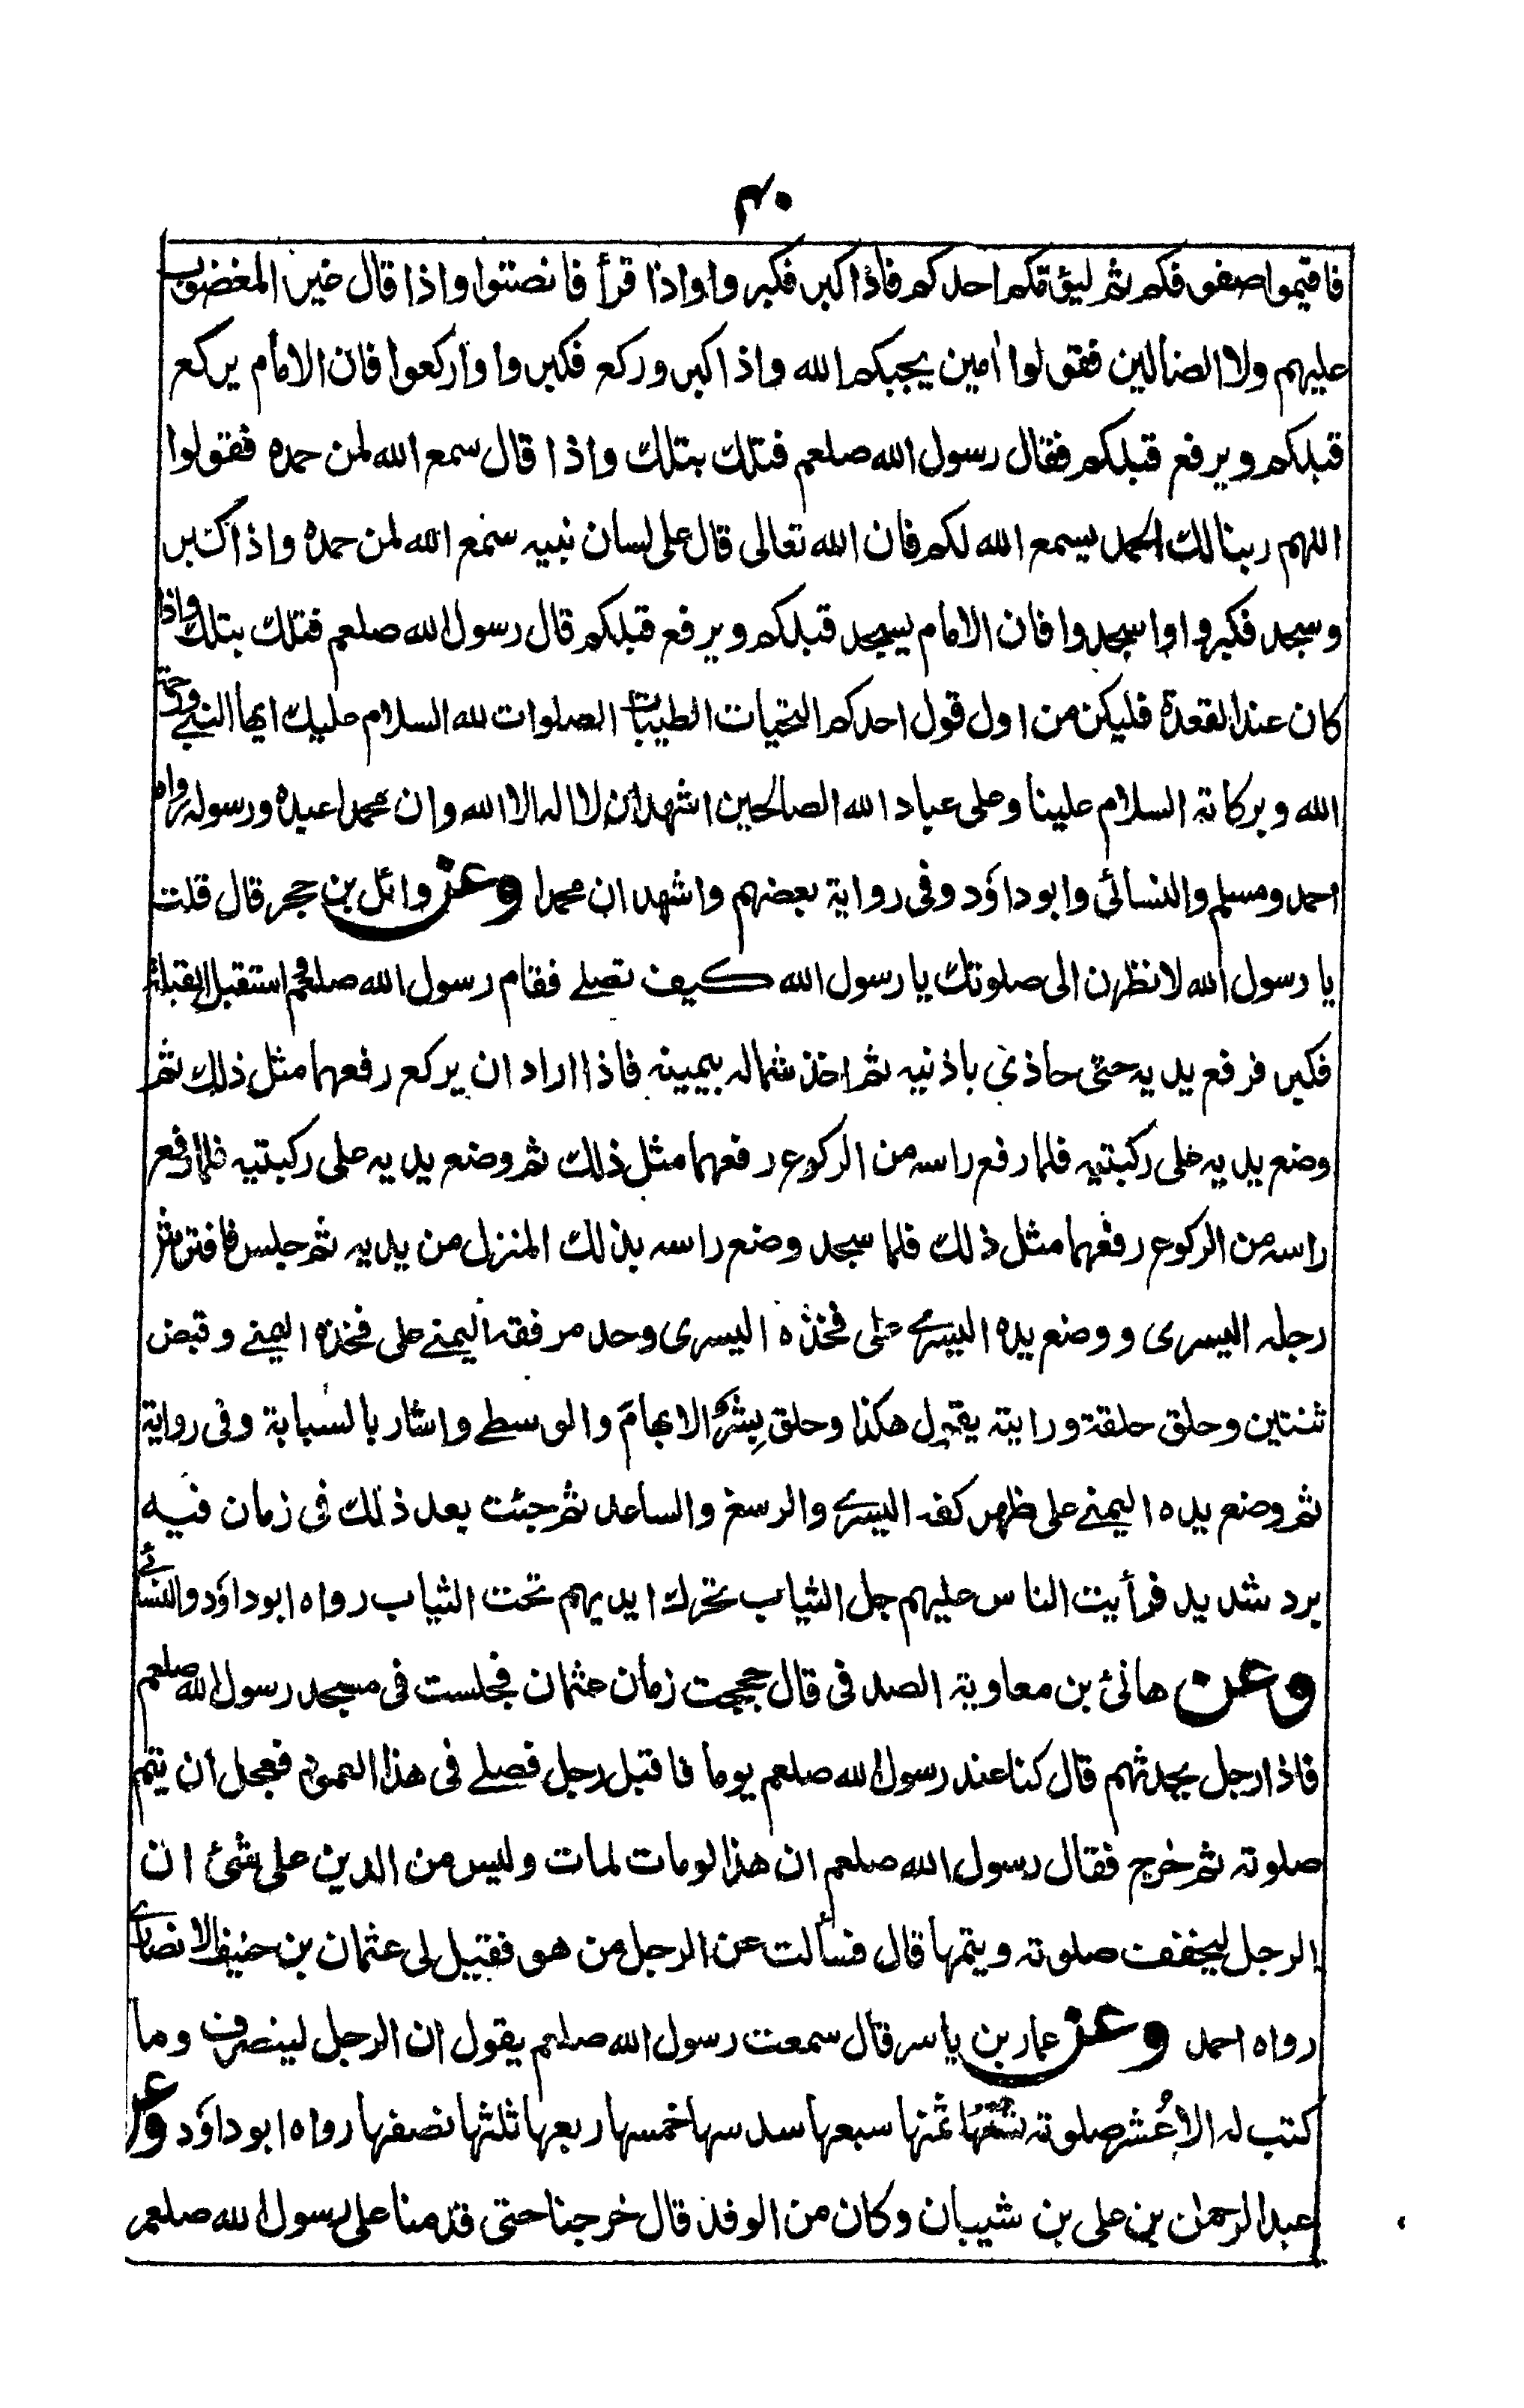 ۴۰
فاقيموا صفوفكم ثم ليؤمكم احدكم فاذا كبر فكبروا واذا قرأ فانصتوا واذا قال غير المغضوب
عليهم ولا الضالين فقولوا امين يجبكم الله واذا كبر وركع فكبروا واركعوا فان الامام يركع
قبلكم ويرفع قبلكم فقال رسول الله صلعم فتلك بتلك واذا قال سمع الله لمن حمده فقولوا
اللهم ربنا لك الحمد يسمع الله لكم فان الله تعالى قال على لسان نبيه سمع الله لمن حمده واذا كبر
وسجد فكبروا واسجدوا فان الامام يسجد قبلكم ويرفع قبلكم قال رسول الله صلعم فتلك بتلك واذا
كان عند القعدة فليكن من اول قول احدكم التحيات الطيبات الصلوات لله السلام عليك ايها النبى ورحمة
الله وبركاته السلام علينا وعلى عباد الله الصالحين اشهد ان لا اله الا الله وان محمدا عبده ورسوله رواه
احمد ومسلم والنسائي وابو داؤد وفى رواية بعضهم واشهد ان محمدا وعن وائل بن حجر قال قلت
يا رسول الله لانظرن الى صلوتك يا رسول الله كيف تصلے فقام رسول الله صلعم استقبل القبلة
فكبر فرفع يديه حتى حاذى باذنيه ثم اخذ شماله بيمينه فاذا اراد ان يركع رفعهما مثل ذلك ثم
وضع يديه على ركبتيه فلما رفع راسه من الركوع رفعهما مثل ذلك ثم وضع يديه على ركبتيه فلما رفع
راسه من الركوع رفعهما مثل ذلك فلما سجد وضع راسه بذلك المنزل من يديه ثم جلس فافترش
رجله اليسرى و وضع يده اليسرے على فخذه اليسرى وحد مرفقه اليمنے على فخذه اليمنے وقبض
ثنتين وحلق حلقة ورايته يقول هكذا وحلق بشر الابهام والوسطے واشار بالسبابة وفى رواية
ثم وضع يده اليمنے على ظهر كفه اليسرے والرسغ والساعد ثم جئت بعد ذلك فى زمان فيه
برد شديد فرأيت الناس عليهم جل الثياب تحرك ايديهم تحت الثياب رواه ابو داؤد والنسائے
وعن هانئ بن معاوية الصدفى قال حججت زمان عثمان فجلست فى مسجد رسول الله صلعم
فاذا رجل يحدثهم قال كنا عند رسول الله صلعم يوما فاقبل رجل فصلے فى هذا العمود فعجل ان يتم
صلوته ثم خرج فقال رسول الله صلعم ان هذا لو مات لمات وليس من الدين على شئ ان
الرجل ليخفف صلوته ويتمها قال فسألت عن الرجل من هو فقيل لى عثمان بن حنيف الانصارے
رواه احمد وعن عمار بن ياسر قال سمعت رسول الله صلعم يقول ان الرجل لينصرف وما
كتب له الا عُشر صلوته تسعها ثمنها سبعها سدسها خمسها ربعها ثلثها نصفها رواه ابو داؤد وعن
عبد الرحمن بن على بن شيبان وكان من الوفد قال خرجنا حتى قدمنا على رسول الله صلعم